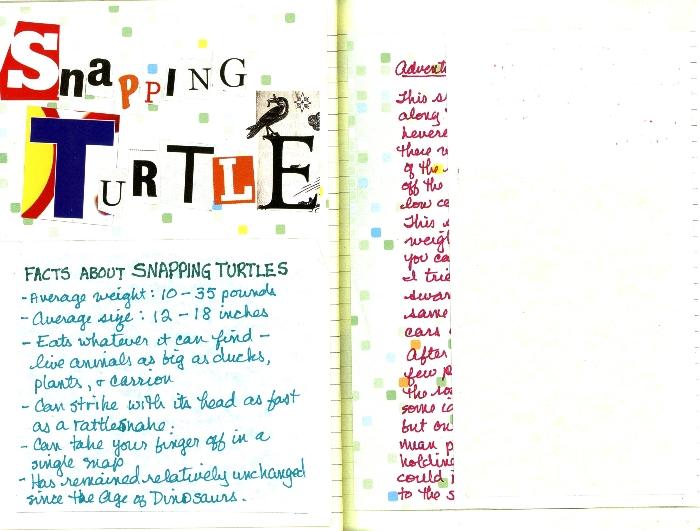 Snapping
TURTLE
FACTS ABOUT SNAPPING TURTLES
- Average weight: 10 - 35 pounds
- Average size: 12 - 18 inches
- Eats whatever it can find -
live animals as big as ducks,
plants, & carrion
- Can strike with its head as fast
as a rattlesnake.
- Can take your finger off in a
single snap
- Has remained relatively unchanged
since the Age of Dinosaurs.
This
along
there
of the
off the
low
This
weigh
you
I
same
cars
After
few
the
some
but
man
holding
could
to the